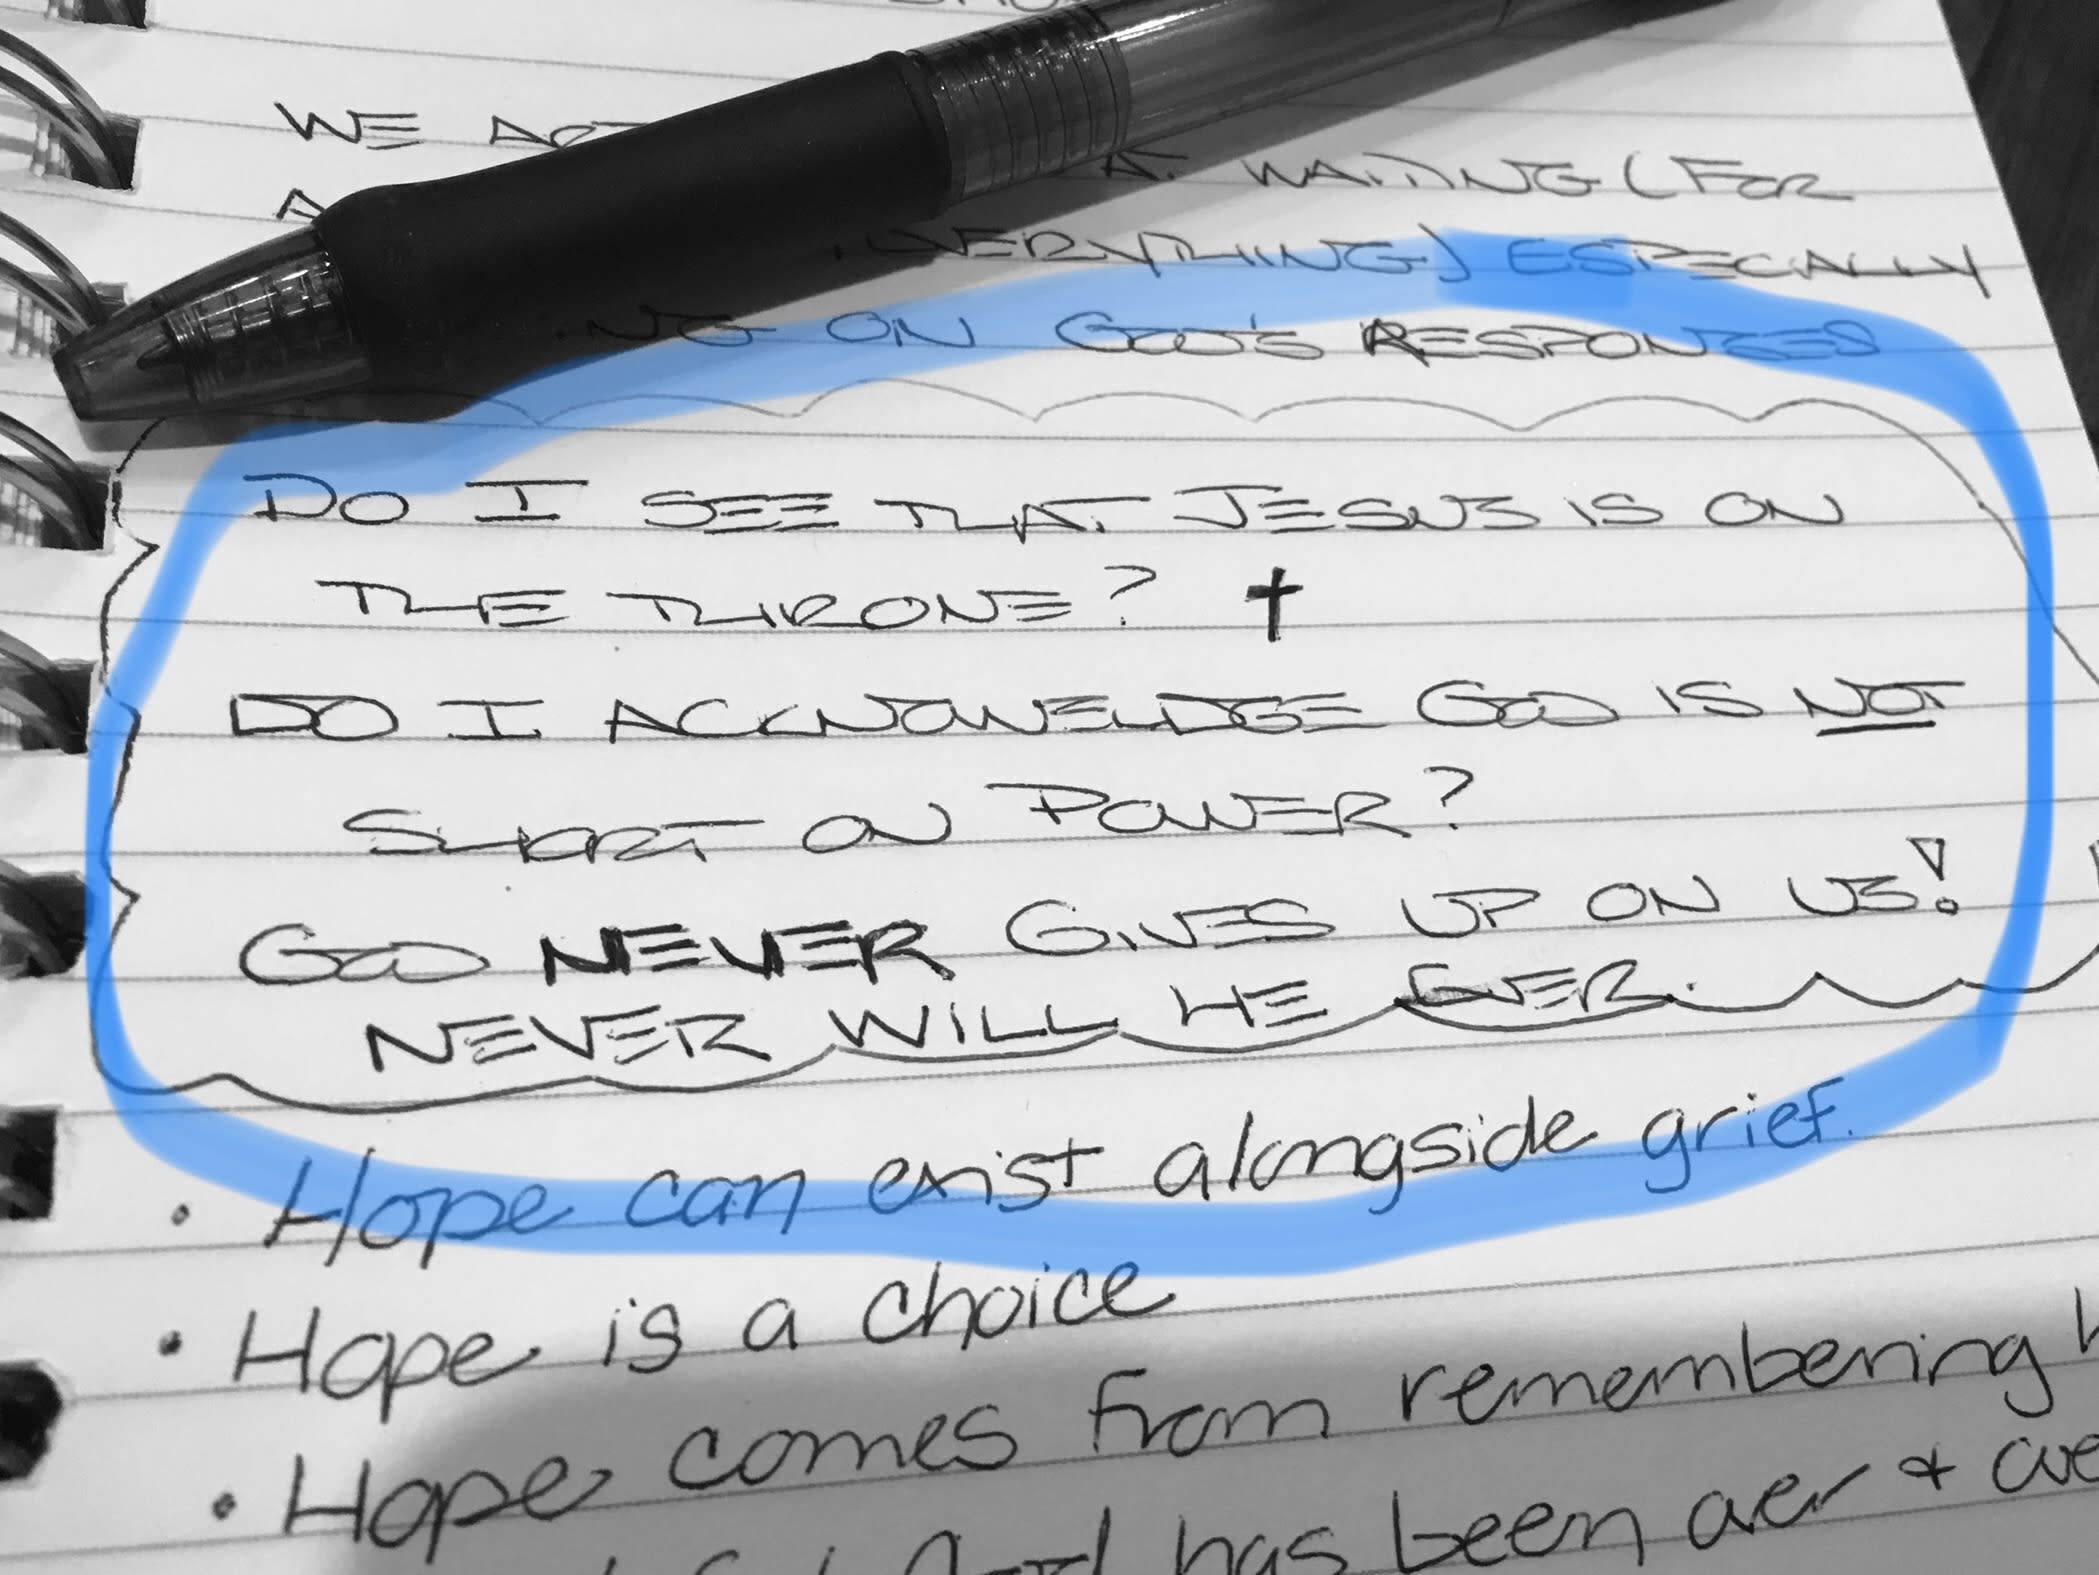 WE
AT WAITING (FOR
EVERYTHING) ESPECIALLY
ON GOD'S RESPONSES
DO I SEE THAT JESUS IS ON
THE THRONE? ✝
DO I ACKNOWELDGE GOD IS NOT
SHORT ON POWER?
GOD NEVER GIVES UP ON US!
NEVER WILL HE EVER.
• Hope can exist alongside grief.
• Hope is a choice
• Hope comes from remembering
God has been over +